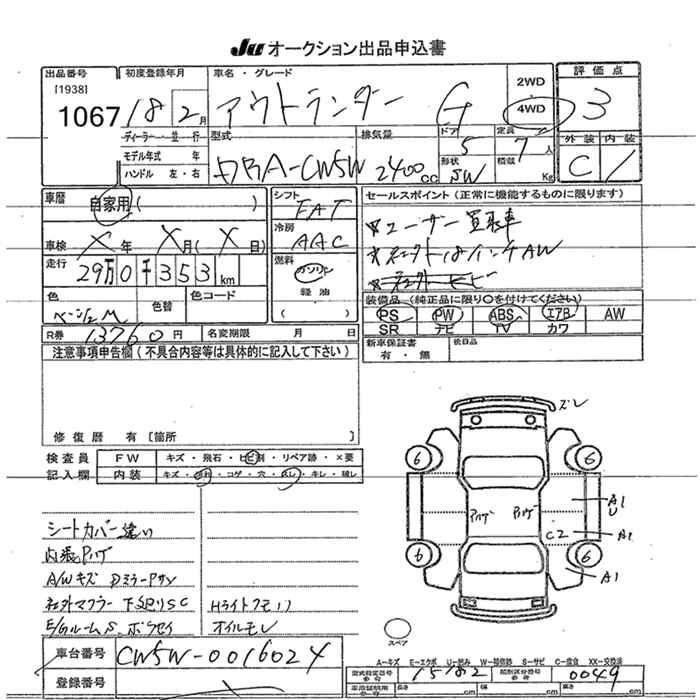 JU オークション出品申込書
出品番号 初度登録年月 車名・グレード 2WD 評価点
[1938]
1067 18 2月 アウトランダー G 4WD 3
ディーラー・並行 型式 排気量 ドア 定員 外装 内装
モデル年式 年 5 7人 C
ハンドル 左・右 DBA-CW5W 2400cc 形状 SW 積載 Kg
車歴 自家用( ) シフト FAT セールスポイント(正常に機能するものに限ります)
冷房 AAC ユーザー買取車
車検 X年 X月(X日) 18インチAW
走行 29万0千353km 燃料 ガソリン
軽油
( )
色 色替 色コード 装備品(純正品に限り○を付けてください)
ベージュM PS PW ABS エアB AW
SR ナビ TV カワ
R券 13760円 名変期限 月 日 新車保証書 後日品
有・無
注意事項申告欄(不具合内容等は具体的に記入して下さい)
修復歴 有 [箇所 ]
検査員 FW キズ・飛石・ヒビ割・リペア跡・×要
記入欄 内装 キズ・汚れ・コゲ・穴・スレ・キレ・破レ
ズレ
6 6
A1
U
ハゲ ハゲ
C2 A1
6 6
A1
シートカバー違い
内張ハゲ
A/Wキズ DミラーPサビ
社外マフラー 下廻りSC Hライトクモリ
E/Gルーム オイルモレ
スペア
車台番号 CW5W-0016024
A-キズ E-エクボ U-凹み W-補修跡 S-サビ C-腐食 XX-交換済
型式指定番号 15182 類別区分番号 0049
登録番号 長さ cm 幅 cm 高さ cm